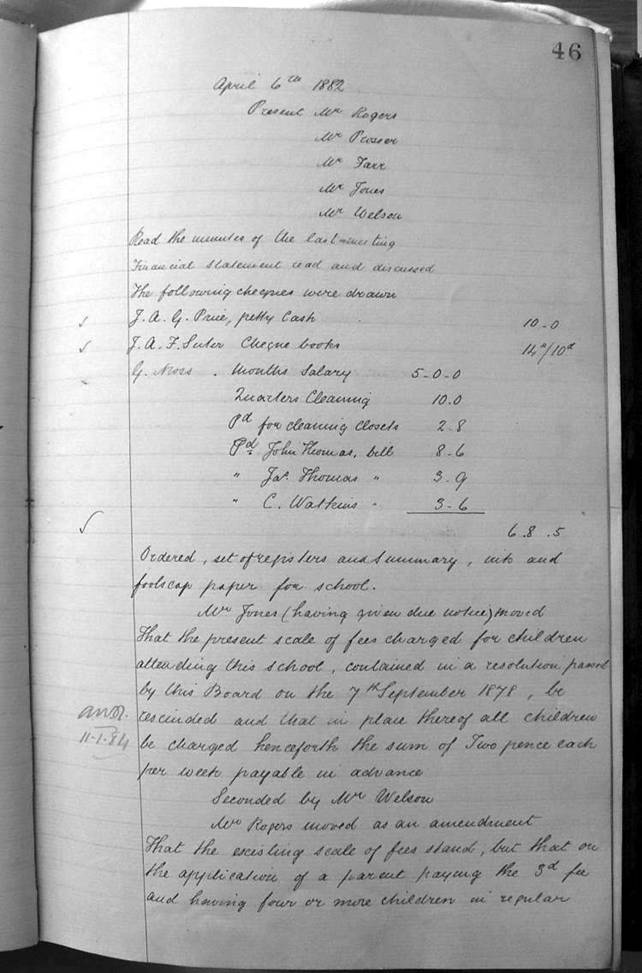 46
April 6th 1882
Present Mr Rogers
Mr Prosser
Mr Farr
Mr Jones
Mr Welson
Read the minutes of the last meeting
Financial statement read and discussed
The following cheques were drawn
J. A. G. Price, petty Cash 10-0
J. A. F. Suter Cheque books 14s/10d
G. Moss . Months Salary 5-0-0
Quarters Cleaning 10.0
Pd for cleaning closets 2.8
Pd John Thomas, bill 8-6
" Jas. Thomas " 3-9
" C. Watkins " 3-6
6.8.5
Ordered, set of registers and summary, ink and
foolscap paper for school.
Mr Jones (having given due notice) moved
That the present scale of fees charged for children
attending this school, contained in a resolution passed
by this Board on the 7th September 1878, be
rescinded and that in place thereof all children
11-1-84
be charged henceforth the sum of Two pence each
per week payable in advance
Seconded by Mr Welson
Mr Rogers moved as an amendment
That the existing scale of fees stand, but that on
the application of a parent paying the 3d fee
and having four or more children in regular